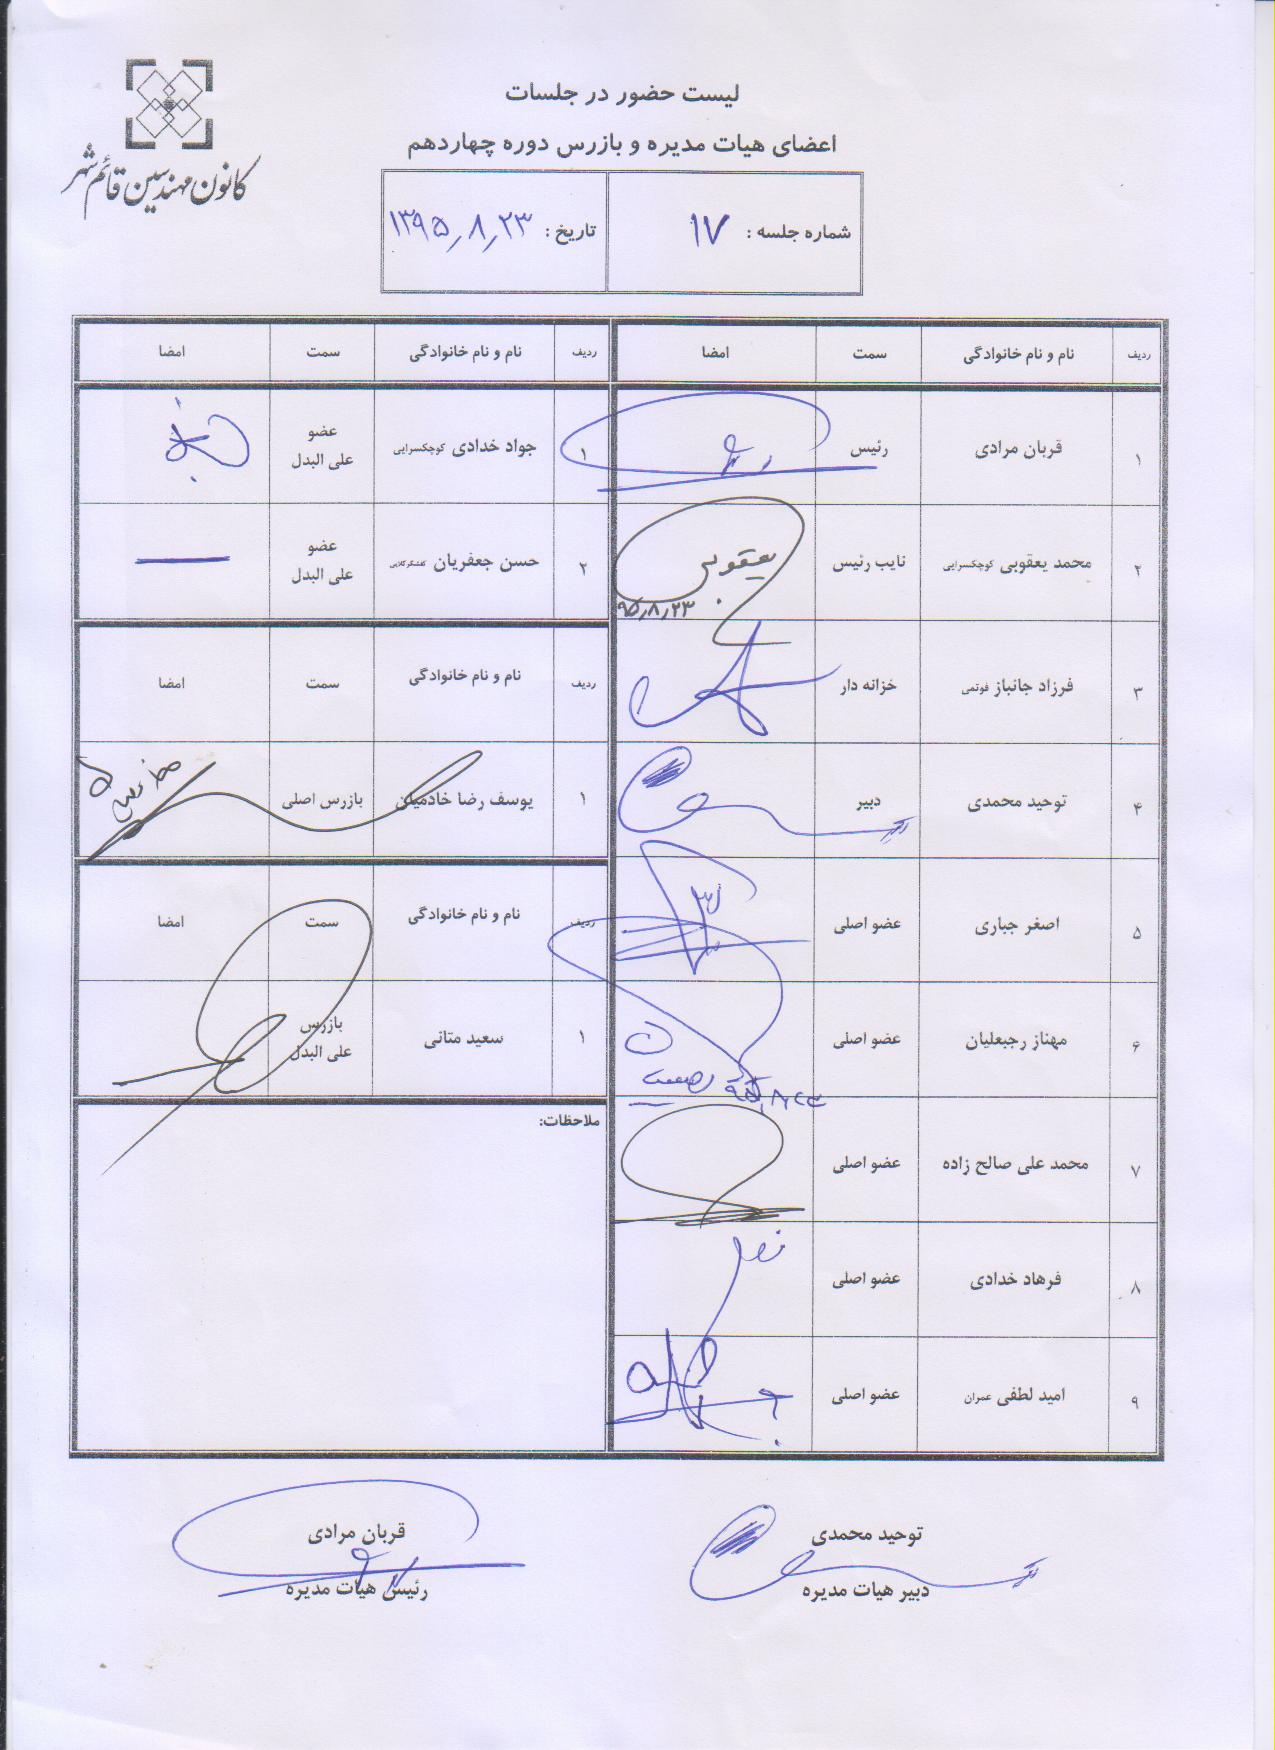 کانون مهندسین قائم شهر
لیست حضور در جلسات
اعضای هیات مدیره و بازرس دوره چهاردهم
شماره جلسه : ۱۷
تاریخ : ۱۳۹۵/۸/۲۳
ردیف نام و نام خانوادگی سمت امضا
۱ قربان مرادی رئیس
۲ محمد یعقوبی کوچکسرایی نایب رئیس یعقوبی
۹۵/۸/۲۳
۳ فرزاد جانباز فوتمی خزانه دار
۴ توحید محمدی دبیر
۵ اصغر جباری عضو اصلی
۶ مهناز رجبعلیان عضو اصلی
۷ محمد علی صالح زاده عضو اصلی
۸ فرهاد خدادی عضو اصلی
۹ امید لطفی عمران عضو اصلی
ردیف نام و نام خانوادگی سمت امضا
۱ جواد خدادی کوچکسرایی عضو
علی البدل
۲ حسن جعفریان کفشگرکلایی عضو
علی البدل
ردیف نام و نام خانوادگی سمت امضا
۱ یوسف رضا خادمیان بازرس اصلی
ردیف نام و نام خانوادگی سمت امضا
۱ سعید متانی بازرس
علی البدل
ملاحظات:
توحید محمدی
دبیر هیات مدیره
قربان مرادی
رئیس هیات مدیره